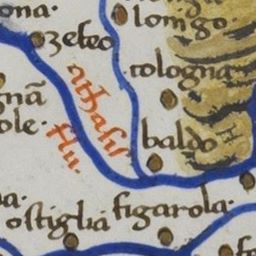 ona·
longo·
zeteo
cologna
athasis
flu·
gnā
ole·
baldo
a·
ostiglia
figarola·